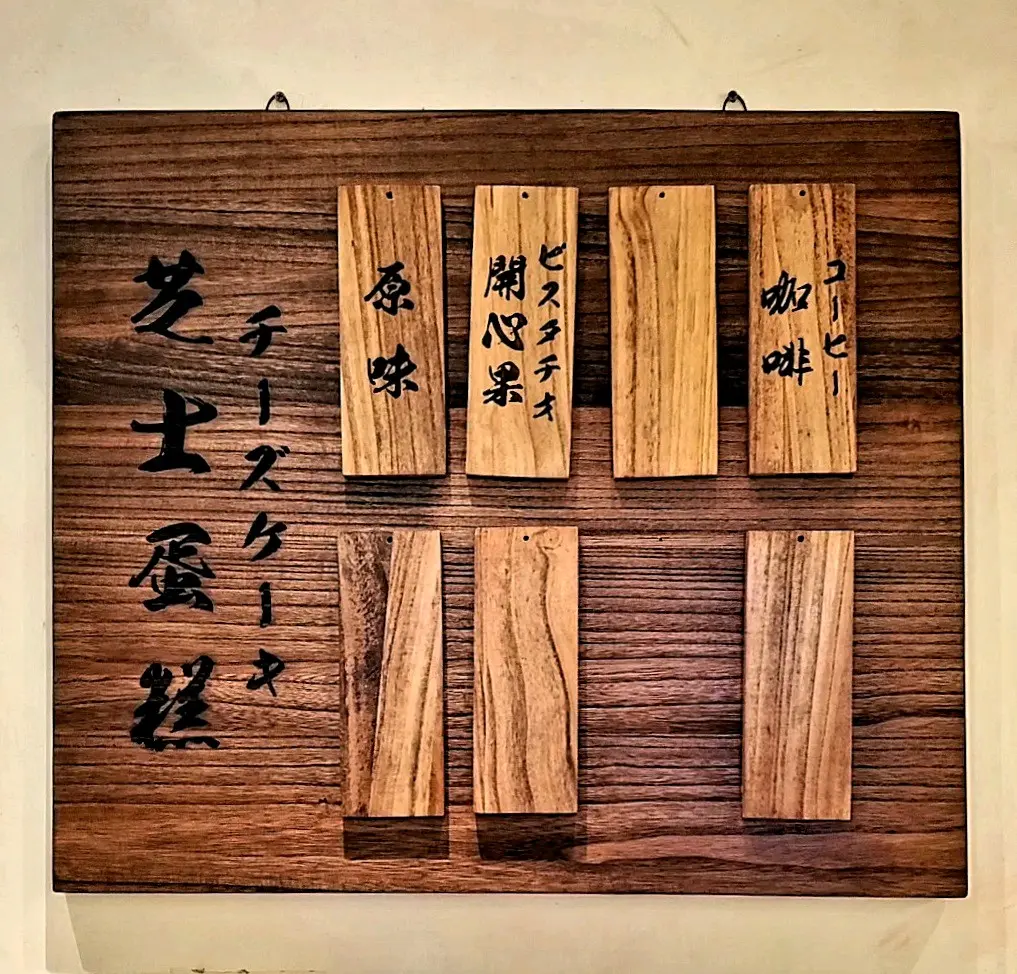 芝士蛋糕
チーズケーキ
原味
開心果
ピスタチオ
咖啡
コーヒー